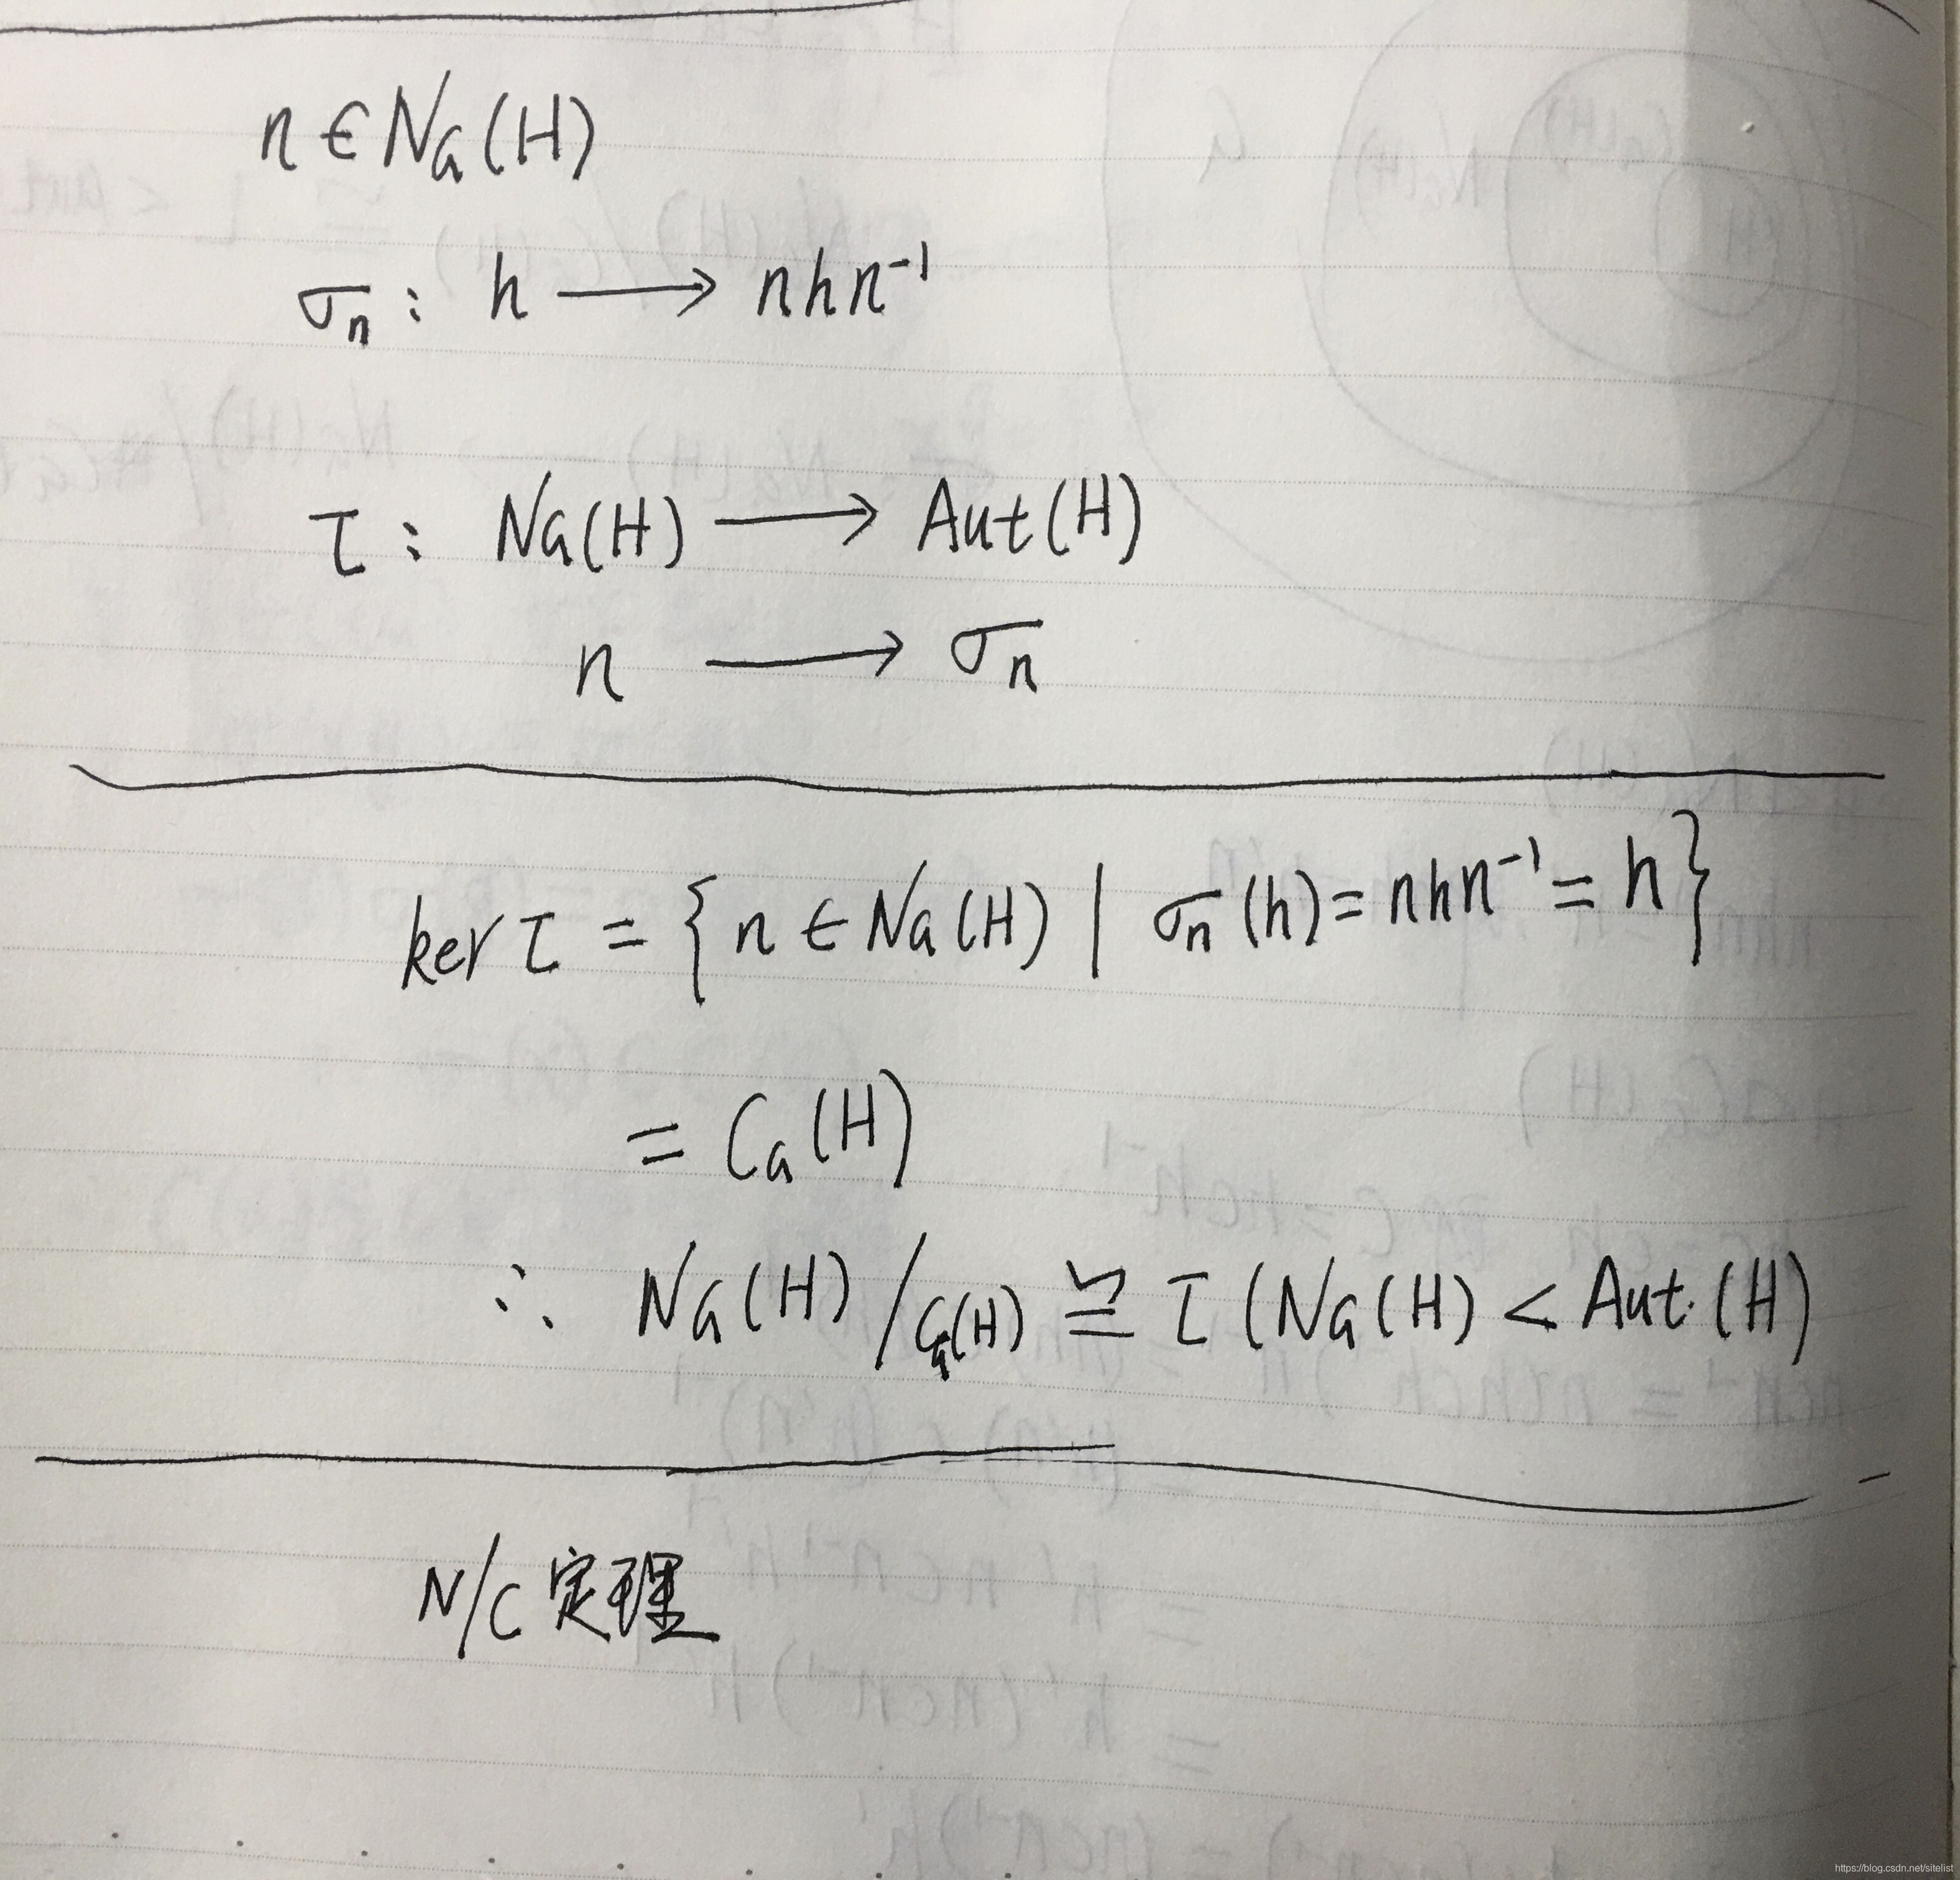 n ∈ N_G(H)
σ_n : h ⟶ nhn⁻¹
τ : N_G(H) ⟶ Aut(H)
n ⟶ σ_n
ker τ = { n ∈ N_G(H) | σ_n(h) = nhn⁻¹ = h }
= C_G(H)
∴ N_G(H) / C_G(H) ≅ τ(N_G(H) < Aut(H)
N/C 定理
https://blog.csdn.net/sitelist